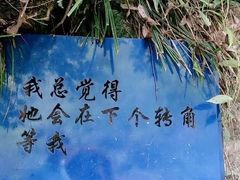 我总觉得
她会在下个转角
等我